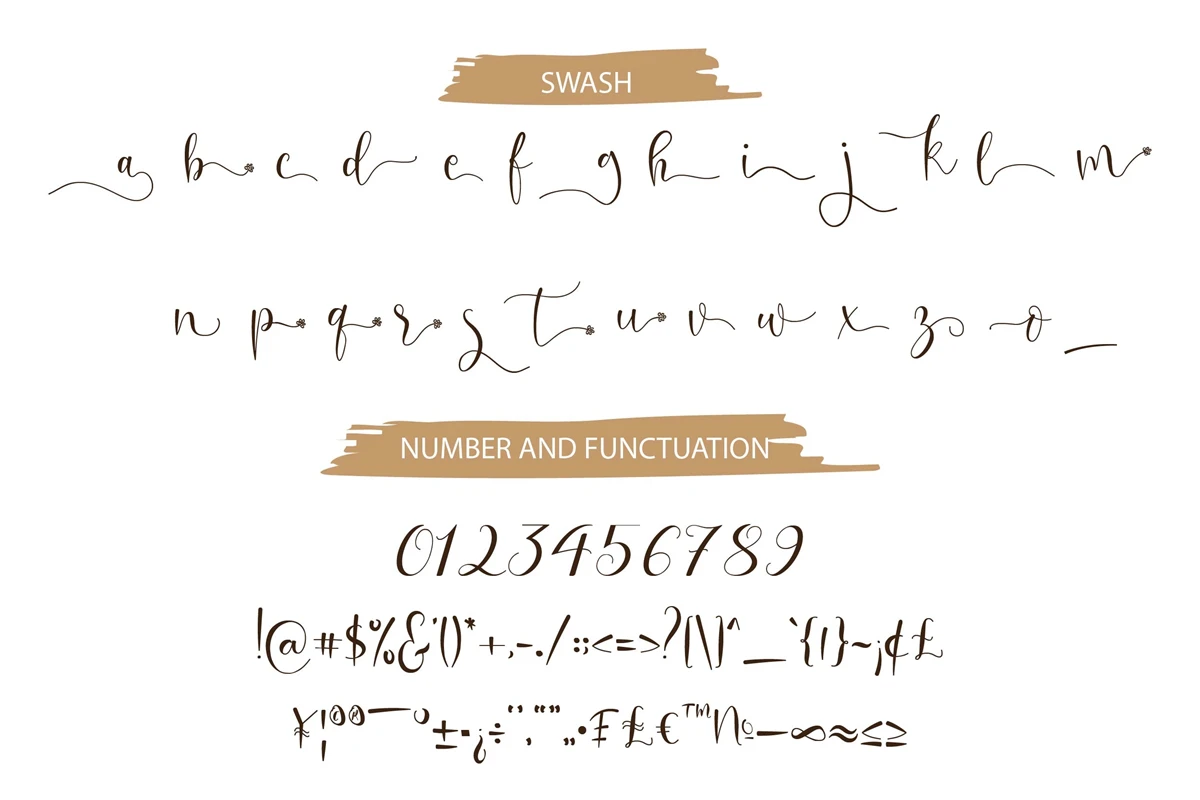 SWASH
a b c d e f g h i j k l m
n p q r s t u v w x z o _
NUMBER AND FUNCTUATION
0123456789
!@#$%&'()*+,-./:;<=>?[\]^_`{|}~¡¢£
¥¦©®¯°±·¿÷‘’‚“”„•₣₤€™№−∞≈≤≥